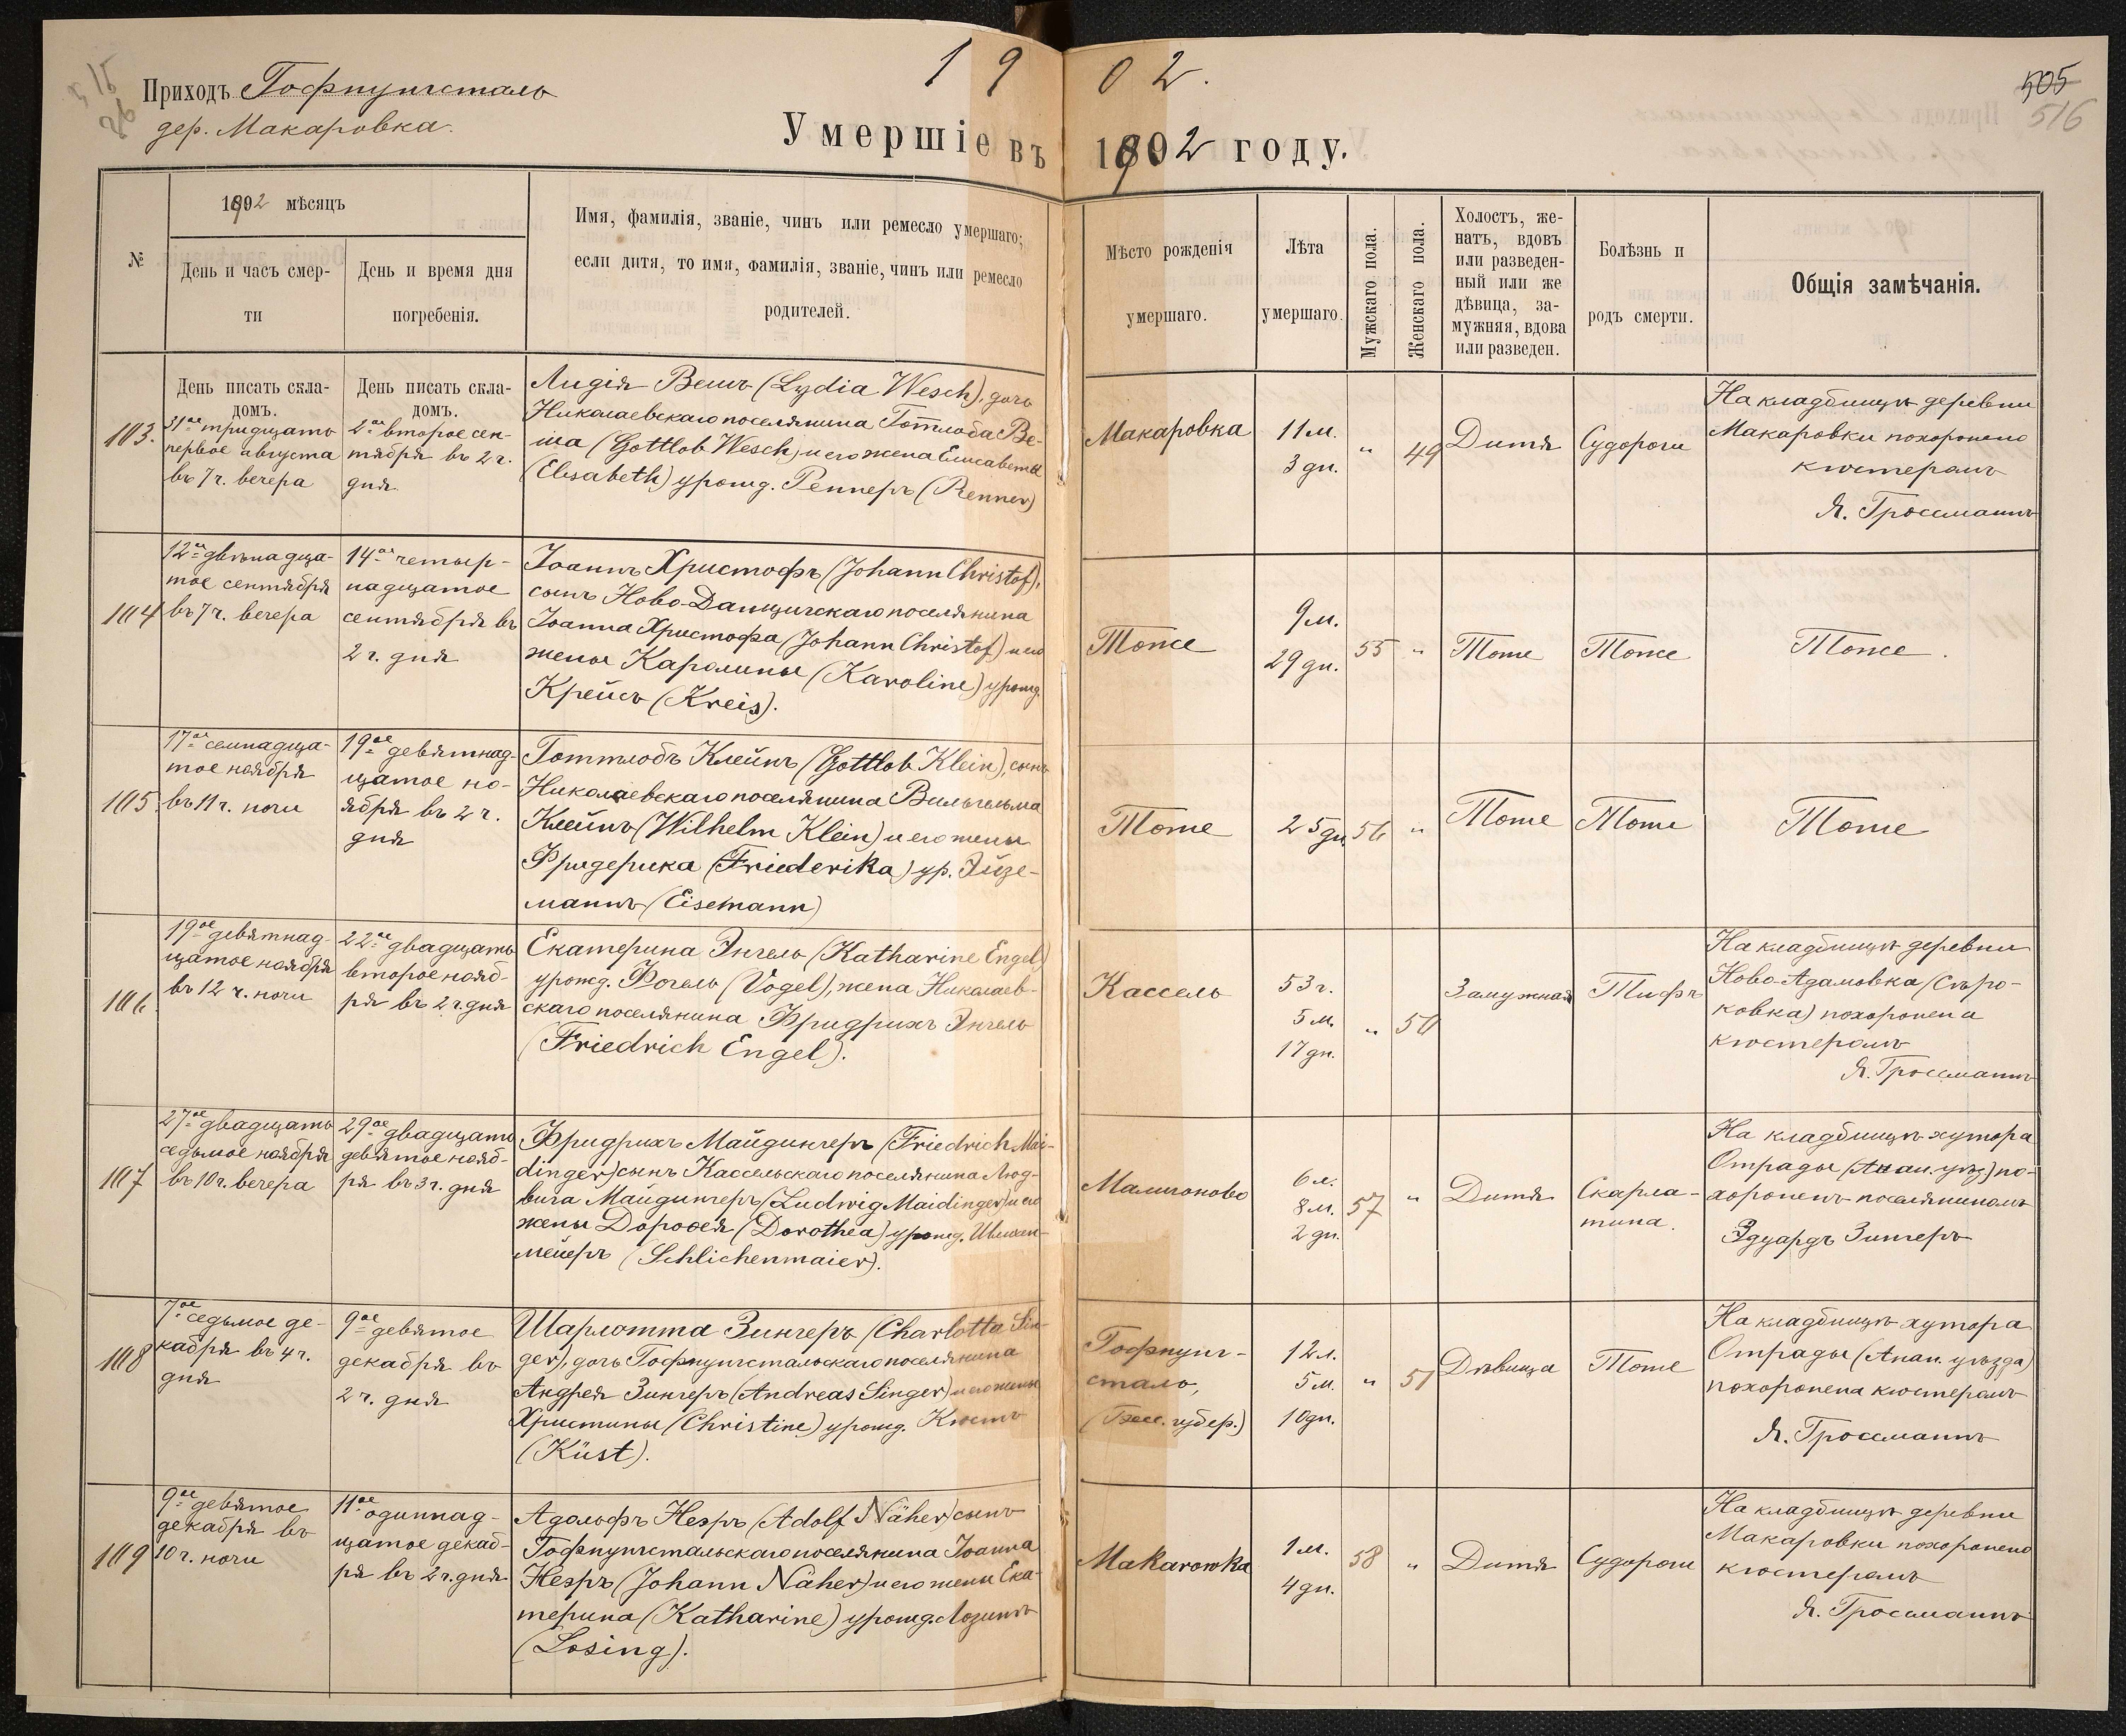 1902.
505
516
Приходъ Гофнунгсталь
дер. Макаровка.
Умершіе въ 1902 году.
№
1902 мѣсяцъ
День и часъ смер-
ти
День и время дня
погребенія.
Имя, фамилія, званіе, чинъ или ремесло умершаго;
если дитя, то имя, фамилія, званіе, чинъ или ремесло
родителей.
Мѣсто рожденія
умершаго.
Лѣта
умершаго.
Мужскаго пола.
Женскаго пола.
Холостъ, же-
натъ, вдовъ
или разведен-
ный или же
дѣвица, за-
мужняя, вдова
или разведен.
Болѣзнь и
родъ смерти.
Общія замѣчанія.
День писать скла-
домъ.
День писать скла-
домъ.
103.
31ое тридцать
первое августа
въ 7 ч. вечера
2ое второе сен-
тября въ 2 ч.
дня
Лидія Вешъ (Lydia Wesch), дочь
Николаевскаго поселянина Готлоба Ве-
ша (Gottlob Wesch) и его жена Елисавета
(Elisabeth) урожд. Реннеръ (Renner)
Макаровка
11 м.
3 дн.
" 49
Дитя
Судороги
На кладбищѣ деревни
Макаровки похоронено
кюстеромъ
Я. Гроссманнъ
104
12ое двѣнадца-
тое сентября
въ 7 ч. вечера
14ое четыр-
надцатое
сентября въ
2 ч. дня
Іоаннъ Христофъ (Johann Christof),
сынъ Ново-Данцигскаго поселянина
Іоанна Христофа (Johann Christof) и его
жены Каролины (Karoline) урожд.
Крейсъ (Kreis).
Тоже
9 м.
29 дн.
55 "
Тоже
Тоже
Тоже.
105.
17ое семнадца-
тое ноября
въ 11 ч. ночи
19ое девятнад-
цатое но-
ября въ 2 ч.
дня
Готтлобъ Клейнъ (Gottlob Klein), сынъ
Николаевскаго поселянина Вильгельма
Клейнъ (Wilhelm Klein) и его жены
Фридерика (Friederika) ур. Эйзе-
маннъ (Eisemann)
Тоже
25 дн.
56 "
Тоже
Тоже
Тоже
106.
19ое девятнад-
цатое ноября
въ 12 ч. ночи
22ое двадцать
второе нояб-
ря въ 2 ч. дня
Екатерина Энгель (Katharine Engel)
урожд. Фогель (Vogel), жена Николаев-
скаго поселянина Фридрихъ Энгель
(Friedrich Engel).
Кассель
53 г.
5 м.
17 дн.
" 50
Замужная
Тифъ
На кладбищѣ деревни
Ново-Адамовка (Сѣро-
ковка) похоронена
кюстеромъ
Я. Гроссманнъ
107
27ое двадцать
седьмое ноября
въ 10 ч. вечера
29ое двадцать
девятое нояб-
ря въ 3 ч. дня
Фридрихъ Майдингеръ (Friedrich Mai-
dinger) сынъ Кассельскаго поселянина Люд-
вига Майдингеръ (Ludwig Maidinger) и его
жены Доровея (Dorothea) урожд. Шлихен-
мейеръ (Schlichenmaier).
Малигоново
6 л.
8 м.
2 дн.
57 "
Дитя
Скарла-
тина.
На кладбищѣ хутора
Отрады (Анан. уѣз) по-
хороненъ поселяниномъ
Эдуардъ Зингеръ
108
7ое седьмое де-
кабря въ 4 ч.
дня
9ое девятое
декабря въ
2 ч. дня
Шарлотта Зингеръ (Charlotta Sin-
ger), дочь Гофнунгстальскаго поселянина
Андрея Зингеръ (Andreas Singer) и его жены
Христины (Christine) урожд. Кюстъ
(Küst).
Гофнунг-
сталь,
(Бесс. губер.)
12 л.
5 м.
10 дн.
" 51
Дѣвица
Тоже
На кладбищѣ хутора
Отрады (Анан. уѣзда)
похоронена кюстеромъ
Я. Гроссманнъ
109
9ое девятое
декабря въ
10 ч. ночи
11ое одиннад-
цатое декаб-
ря въ 2 ч. дня
Адольфъ Неэръ (Adolf Näher) сынъ
Гофнунгстальскаго поселянина Іоанна
Неэръ (Johann Näher) и его жены Ека-
терина (Katharine) урожд. Лозингъ
(Losing).
Makarowka
1 м.
4 дн.
58 "
Дитя
Судороги
На кладбищѣ деревни
Макаровки похоронено
кюстеромъ
Я. Гроссманнъ